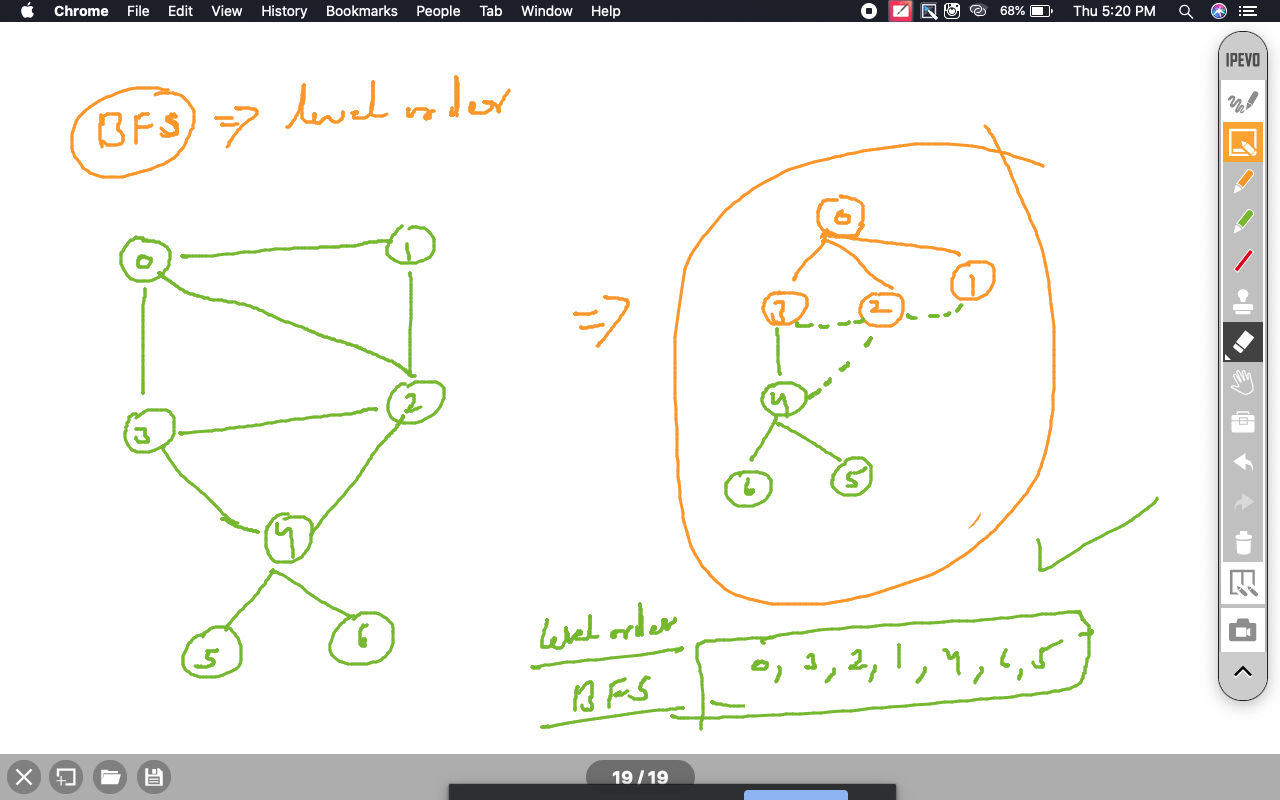 Chrome File Edit View History Bookmarks People Tab Window Help 68% Thu 5:20 PM
IPEVO
BFS => level order
0 1
3 2
4
5 6
=>
0
3 2 1
4
6 5
level order
BFS
0, 3, 2, 1, 4, 6, 5
19 / 19